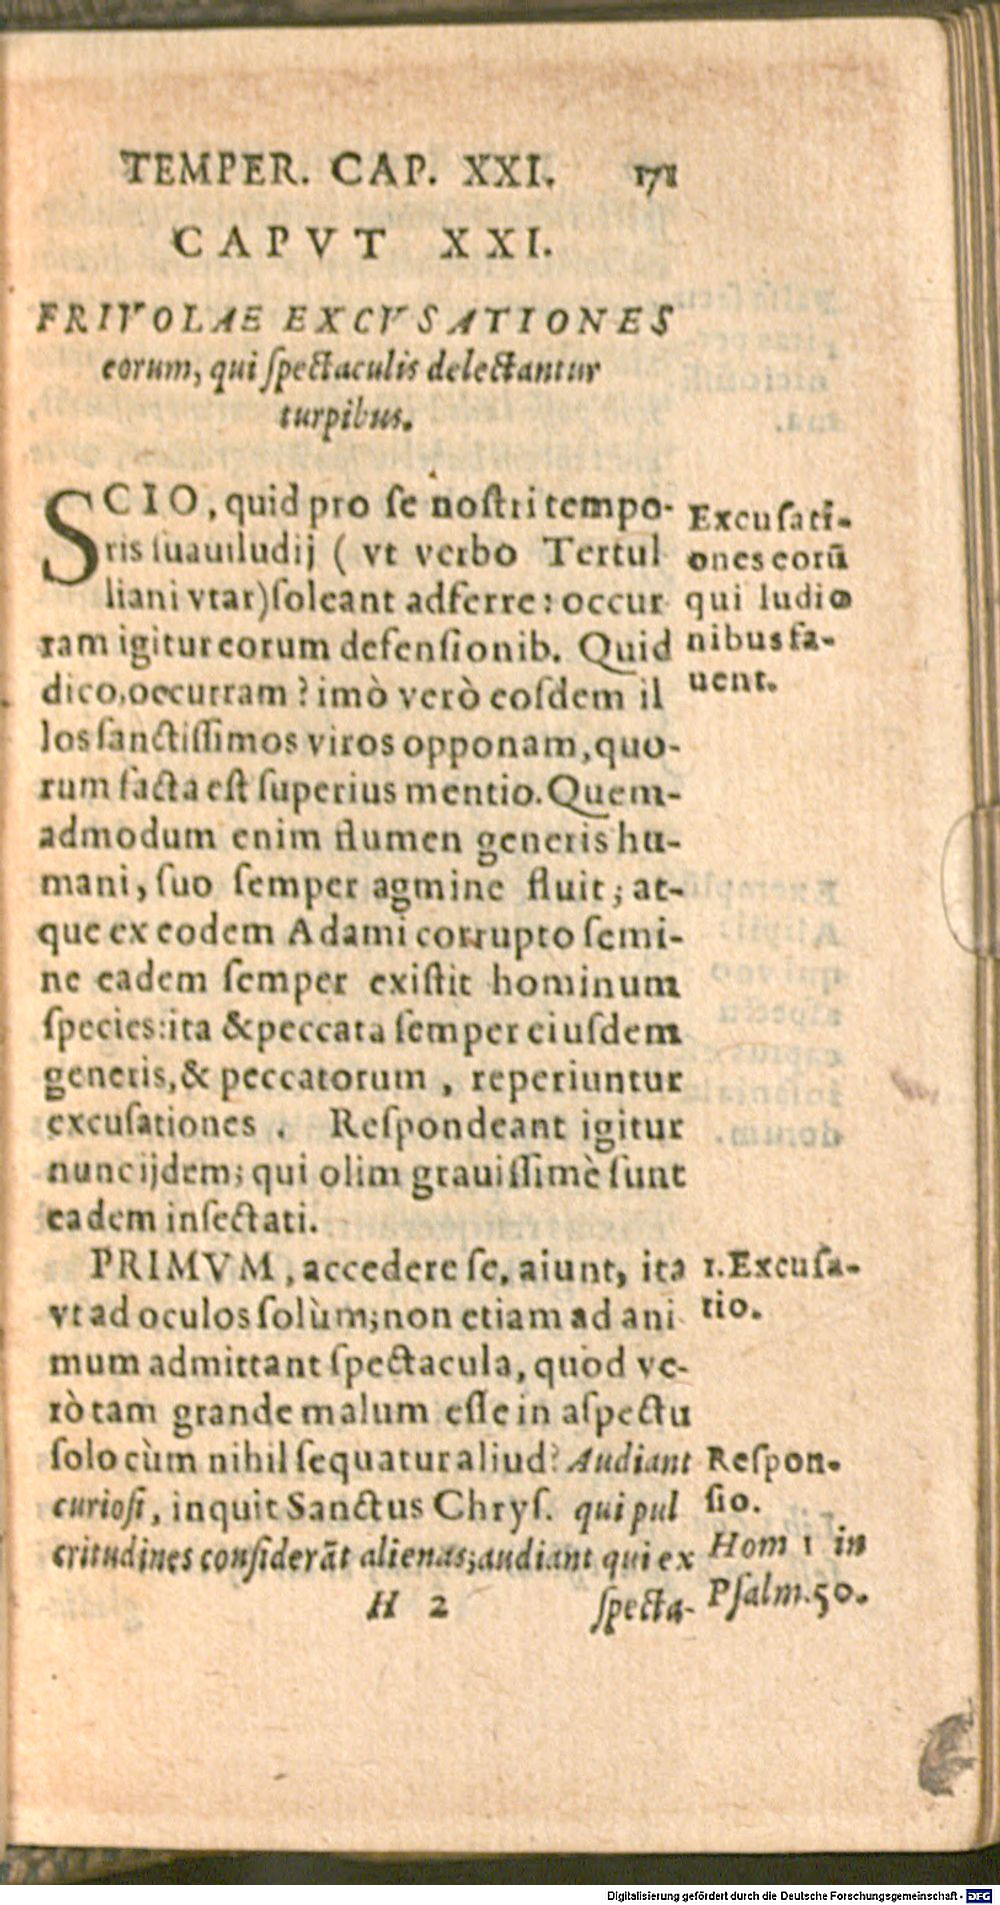 TEMPER. CAP. XXI. 171
CAPVT XXI.
FRIVOLAE EXCVSATIONES
eorum, qui ſpectaculis delectantur
turpibus.
SCIO, quid pro ſe noſtri tempo-
ris ſuauiludij ( vt verbo Tertul
liani vtar) ſoleant adferre: occur
ram igitur eorum defenſionib. Quid
dico, occurram? imò verò eoſdem il
los ſanctiſſimos viros opponam, quo-
rum facta eſt ſuperius mentio. Quem-
admodum enim flumen generis hu-
mani, ſuo ſemper agmine fluit; at-
que ex eodem Adami corrupto ſemi-
ne eadem ſemper exiſtit hominum
ſpecies: ita & peccata ſemper eiuſdem
generis, & peccatorum, reperiuntur
excuſationes. Reſpondeant igitur
nunc ijdem; qui olim grauiſſimè ſunt
eadem inſectati.
PRIMVM, accedere ſe, aiunt, ita
vt ad oculos ſolùm; non etiam ad ani
mum admittant ſpectacula, quod ve-
rò tam grande malum eſſe in aſpectu
ſolo cùm nihil ſequatur aliud? Audiant
curioſi, inquit Sanctus Chryſ. qui pul
critudines conſiderāt alienas; audiant qui ex
H 2 ſpecta-
Excuſati-
ones eorū
qui ludio
nibus fa-
uent.
1. Excuſa-
tio.
Reſpon-
ſio.
Hom 1 in
Pſalm. 50.
Digitalisierung gefördert durch die Deutsche Forschungsgemeinschaft - DFG